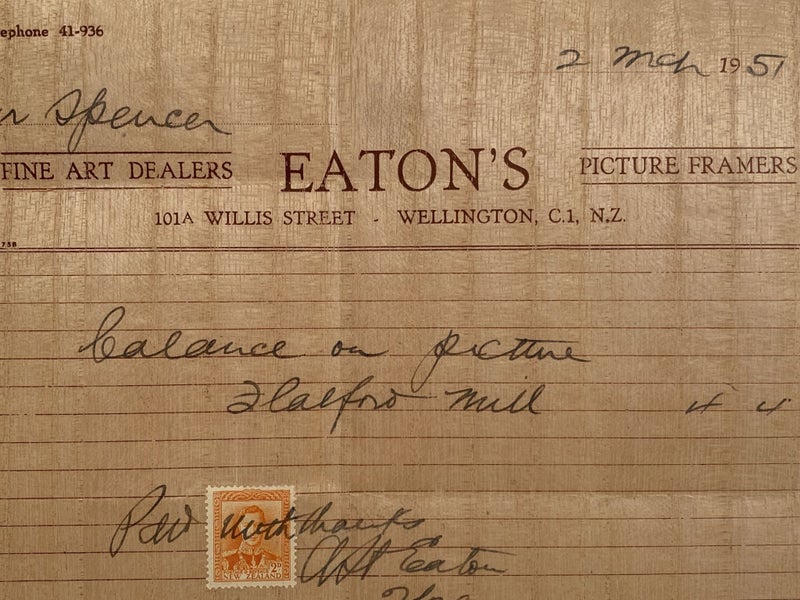 ephone 41-936
2 Mch 1951
r Spencer
FINE ART DEALERS EATON'S PICTURE FRAMERS
101A WILLIS STREET - WELLINGTON, C.1, N.Z.
Balance on picture
Flatford Mill 4 4
with thanks
2D
NEW ZEALAND
Eaton